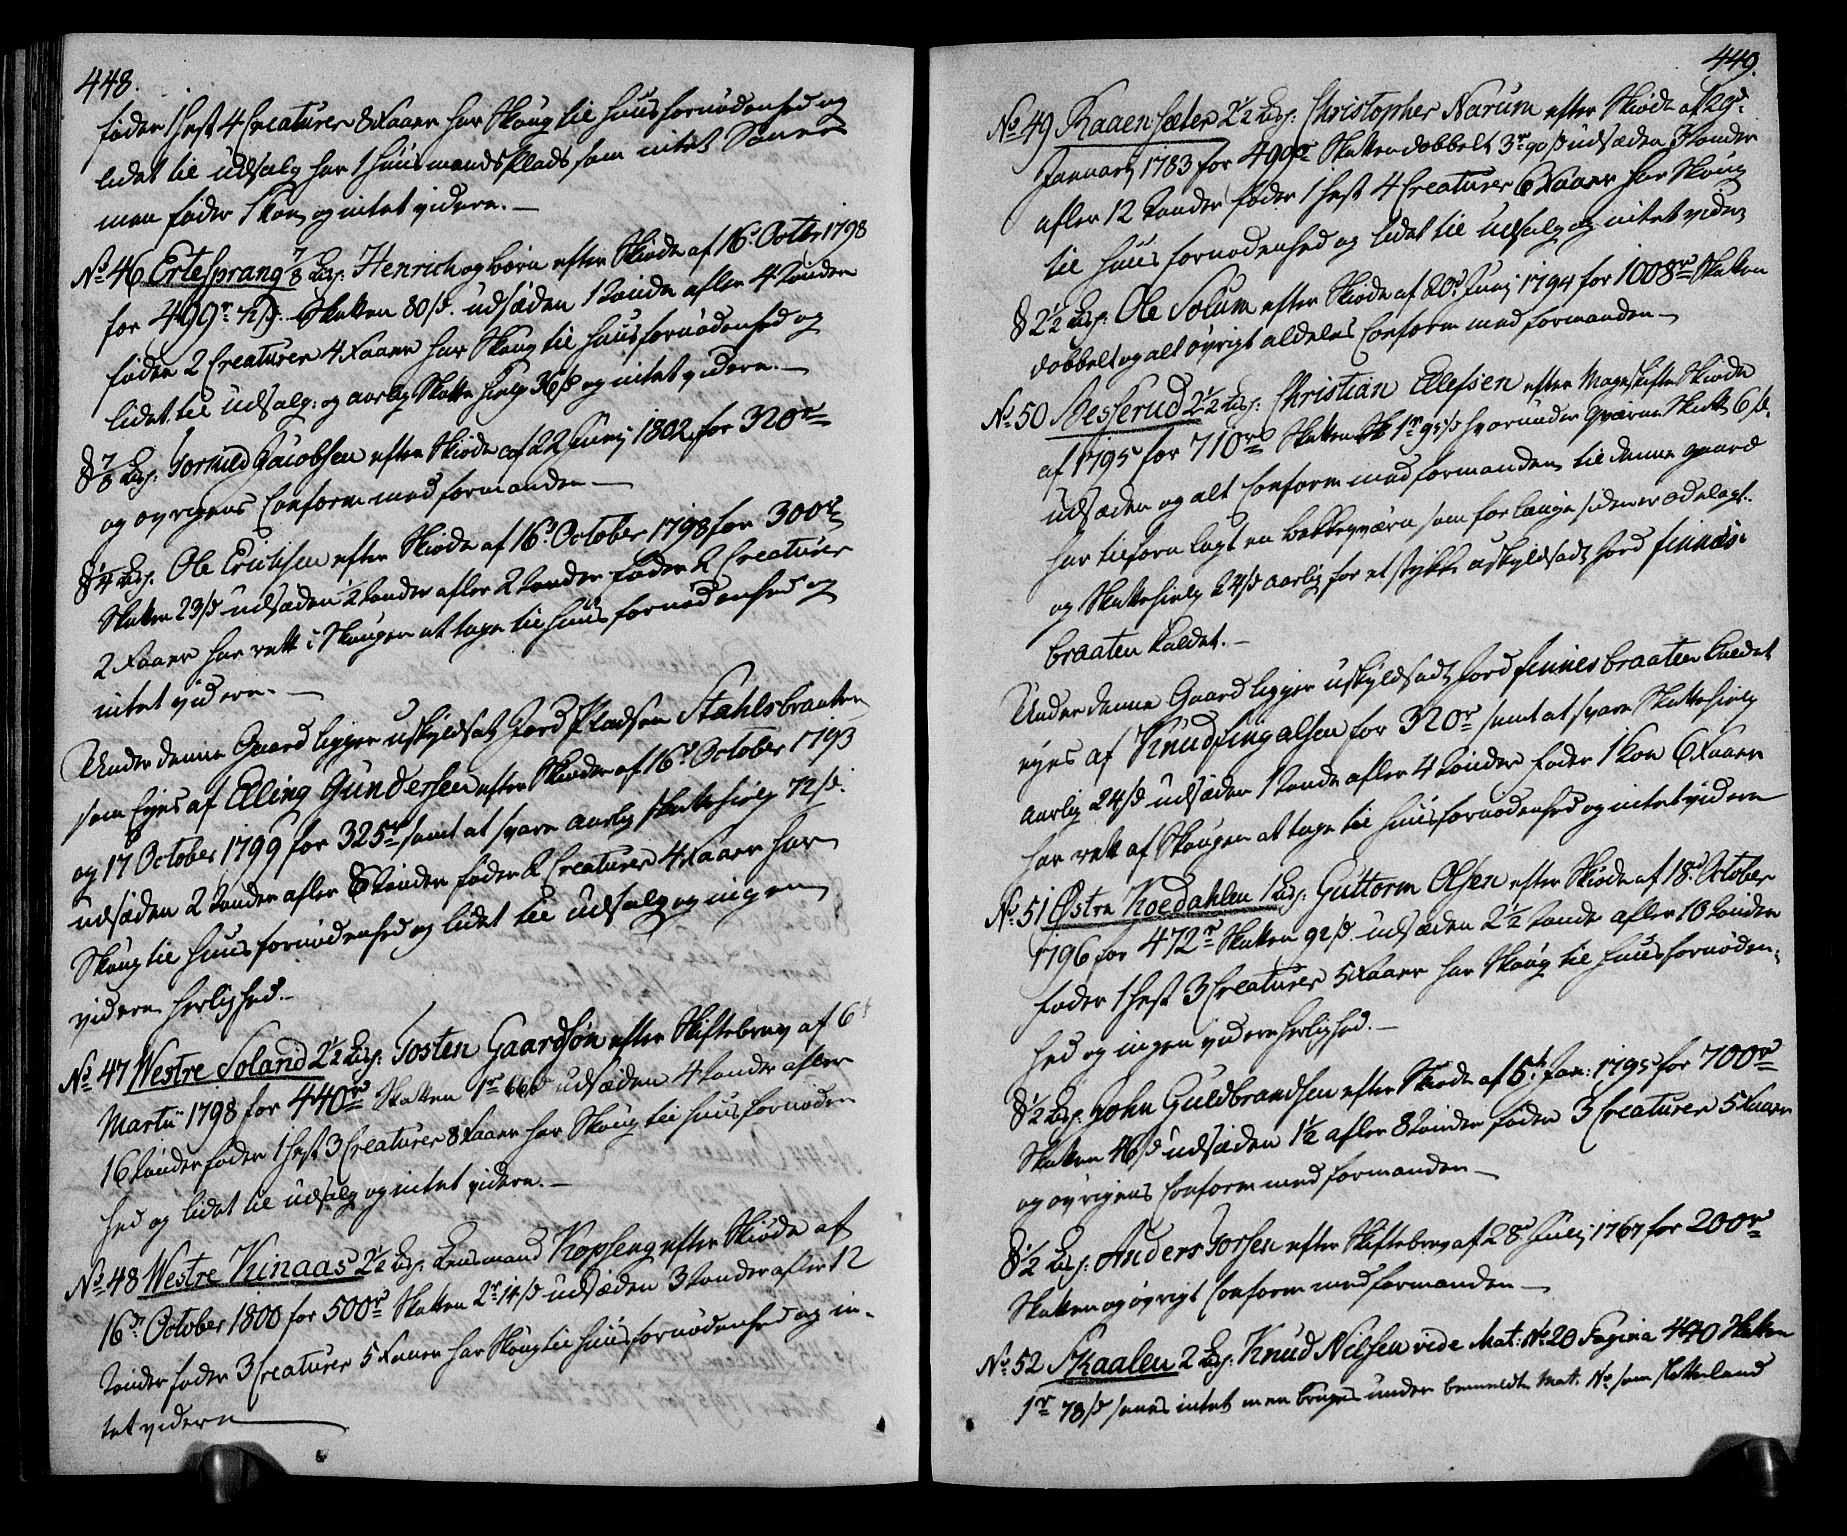 448.
føder 1 Hest 4 Creaturer 8 Faaer har Skoug til Huusfornødenhed og
lidet til udsalg har 1 Huusmands Plads som intet Saaer
men føder 1 Koe og intet videre. —
No. 46 Ertesprang 7/8 Lisp: Henrich og Børn efter Skiøde af 16d. Octbr 1798
for 499r 72/s. Skatten 80/s. udsæden 1 Tønde afler 4 Tønder
føder 2 Creaturer 4 Faaer har Skoug til Huusfornødenhed og
lidet til udsalg: og aarlig Skatte hielp 36/s og intet videre. —
& 7/8 Lisp: Jacobsen efter Skiøde af 22 Junj 1802 for 320r
og øvrigens Conform med formanden —
& 1/4 Lisp: Ole Erichsen efter Skiøde af 16d October 1798 for 300r
Skatten 23/s udsæden 1/2 Tønder afler 2 Tønder føder 2 Creaturer
2 Faaer har rett i Skougen at tage til Huusfornødenhed og
intet videre. —
Under denne Gaard ligger uskyldsatz Jord Pladsen Stahlsbraaten
som Eyes af Elling Gundersen efter Skiøder af 16d October 1793
og 17 October 1799 for 325r samt at svare aarlig skattehielp 72/s.
udsæden 2 Tønder afler 8 Tønder føder 2 Creaturer 4 Faaer har
Skoug til Huusfornødenhed og lidet til udsalg og ingen
videre herlighed. —
No. 47 Westre Soland 2 1/2 Lisp: Tosten Gaardsøn efter Skiftebrev af 6t
Martii 1798 for 440r Skatten 1r 66/s udsæden 4 Tønder afler
16 Tønder føder 1 Hest 3 Creaturer 8 Faaer har Skoug til Huusfornøden
hed og lidet til udsalg og intet videre. —
No. 48 Westre Kinaas 2 1/2 Lisp: Lensmand Kopseng efter Skiøde af
16d. October 1800 for 500r Skatten 2r 14/s udsæden 3 Tønder afler 12
Tønder føder 3 Creaturer 5 Faaer har Skoug til Huusfornødenhed og in-
tet videre —
449.
No. 49 Raaensæter 2 1/2 Lisp: Christopher Narum efter Skiøde af 29d.
Januarj 1783 for 499r Skatten dobbelt 3r 90/s udsæden 3 Tønder
afler 12 Tønder føder 1 Hest 4 Creaturer 6 Faaer har Skoug
til Huusfornødenhed og lidet til udsalg og intet videre
& 2 1/2 Lisp: Ole Solum efter Skiøde af 20d. Junj 1794 for 1008r Skatten
dobbelt og alt øvrigt aldeles Conform med formanden —
No. 50 Besserud 2 1/2 Lisp: Christian Ellefsen efter Mageskifte Skiøde
af 1795 for 710r Skatten 1r 95/s hvorunder qværne Skatt 6/s.
udsæden og alt Conform med formanden, til denne gaard
har tilforn lagt en Bekkeqværn som for længe siden er ødelagt.
og Skattehielp 24/s aarlig for et stykke uskyldsatz Jord Finnes-
braaten kaldet. —
Under denne Gaard ligger uskyldsatz Jord Finnesbraaten kaldet
eyes af Knud Fingalsen for 320r samt at svare Skattehielp
aarlig 24/s udsæden 1 Tønde afler 4 Tønder føder 1 Koe 6 Faaer
har rett af Skougen at tage til Huusfornødenhed og intet videre
No. 51 Østre Koedahlen 1 Lisp: Guttorm Olsen efter Skiøde af 18d. October
1796 for 472r Skatten 92/s. udsæden 2 1/2 Tønde afler 10 Tønder
føder 1 Hest 3 Creaturer 5 Faaer har Skoug til Huusfornøden-
hed og ingen videre herlighed. —
& 1/2 Lisp: John Guldbrandsen efter Skiøde af 5t. Jan: 1795 for 700r
Skatten 46/s udsæden 1 1/2 afler 8 Tønder føder 3 Creaturer 5 Faaer
og øvrigens Conform med formanden —
& 1/2 Lisp: Anders Torsen efter Skiftebrev af 28d Julj 1767 for 200r
Skatten og øvrigt Conform med formanden —
No. 52 Skaalen 2 Lisp: Knud Nilsen vide Mat: No. 20 Pagina 440 Skatten
1r 78/s saaes intet men bruges under bemeldte Mat. No. som Sletteland